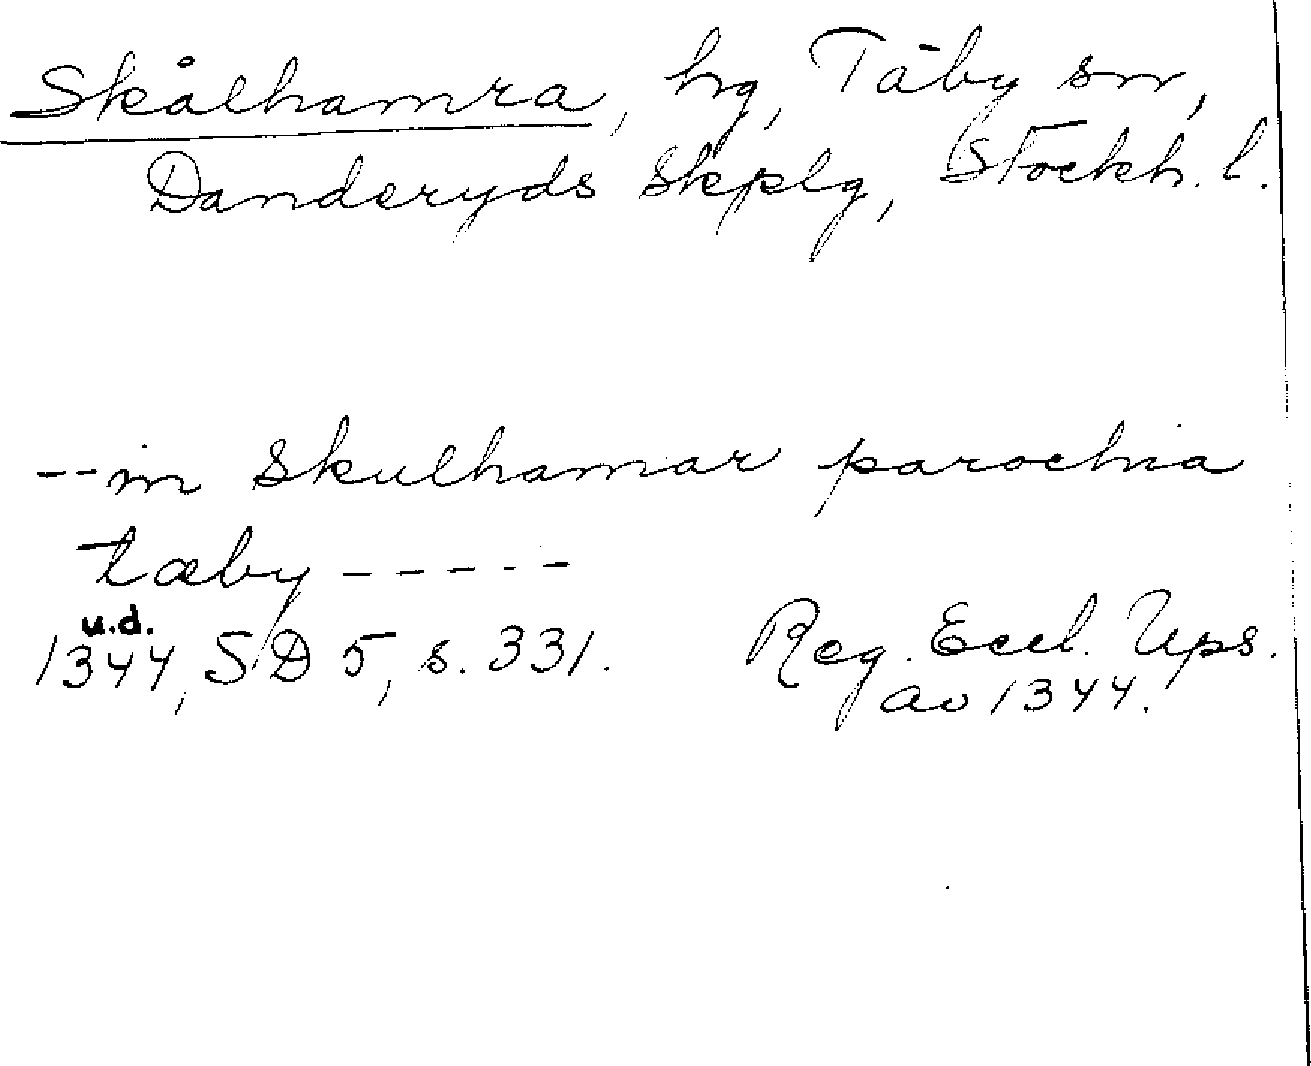 Skålhamra, hg, Täby sn,
Danderyds Skplg, Stockh. l.
--in Skulhamar parochia
tæby-----
u.d.
1344, SD 5, s. 331.
Reg. Eccl. Ups.
av 1344.